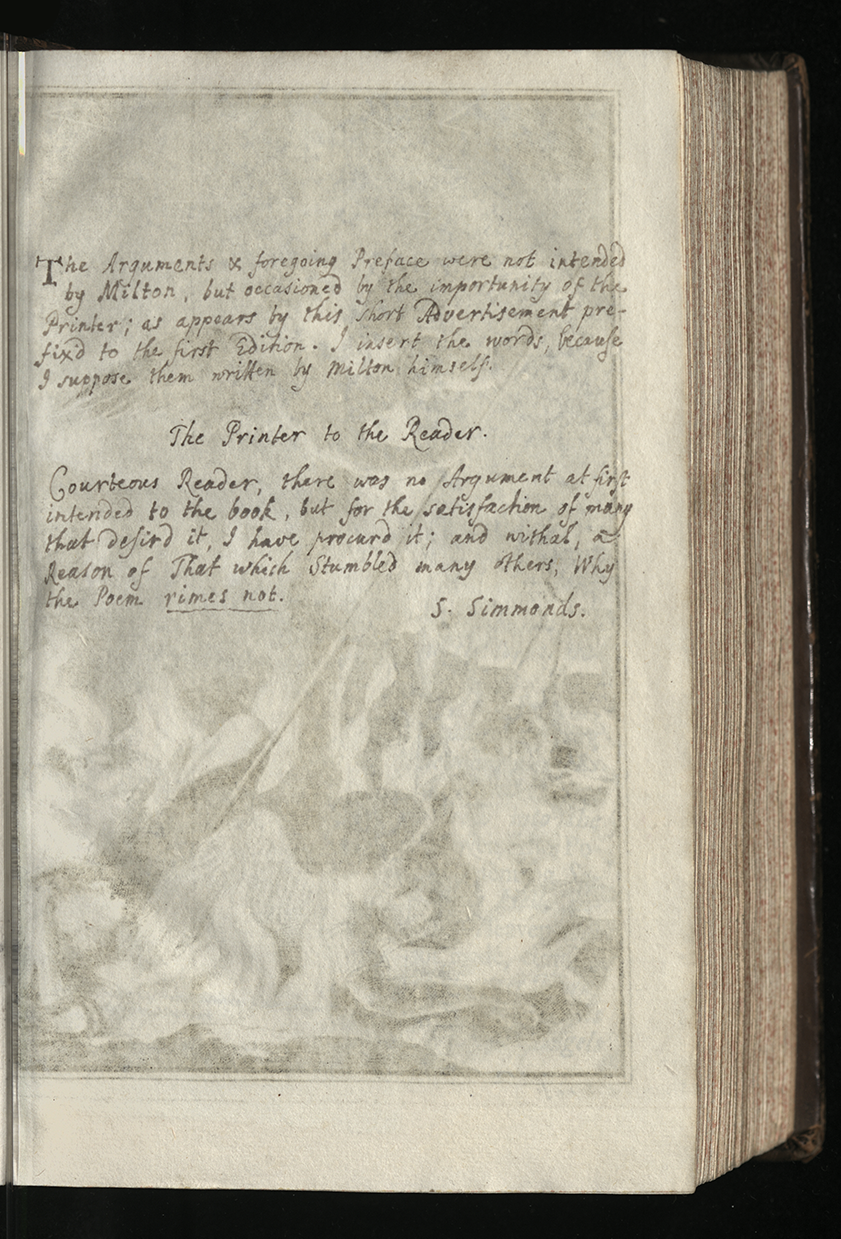 The Arguments & foregoing Preface were not intended
by Milton, but occasioned by the inportunity of the
Printer; as appears by this short Advertisement pre-
fixd to the first Edition. I insert the words, because
I suppose them written by Milton himself.
The Printer to the Reader.
Courteous Reader, there was no Argument at first
intended to the book, but for the satisfaction of many
that desird it, I have procurd it; and withal, a
Reason of That which Stumbled many others, Why
the Poem rimes not.
S. Simmonds.